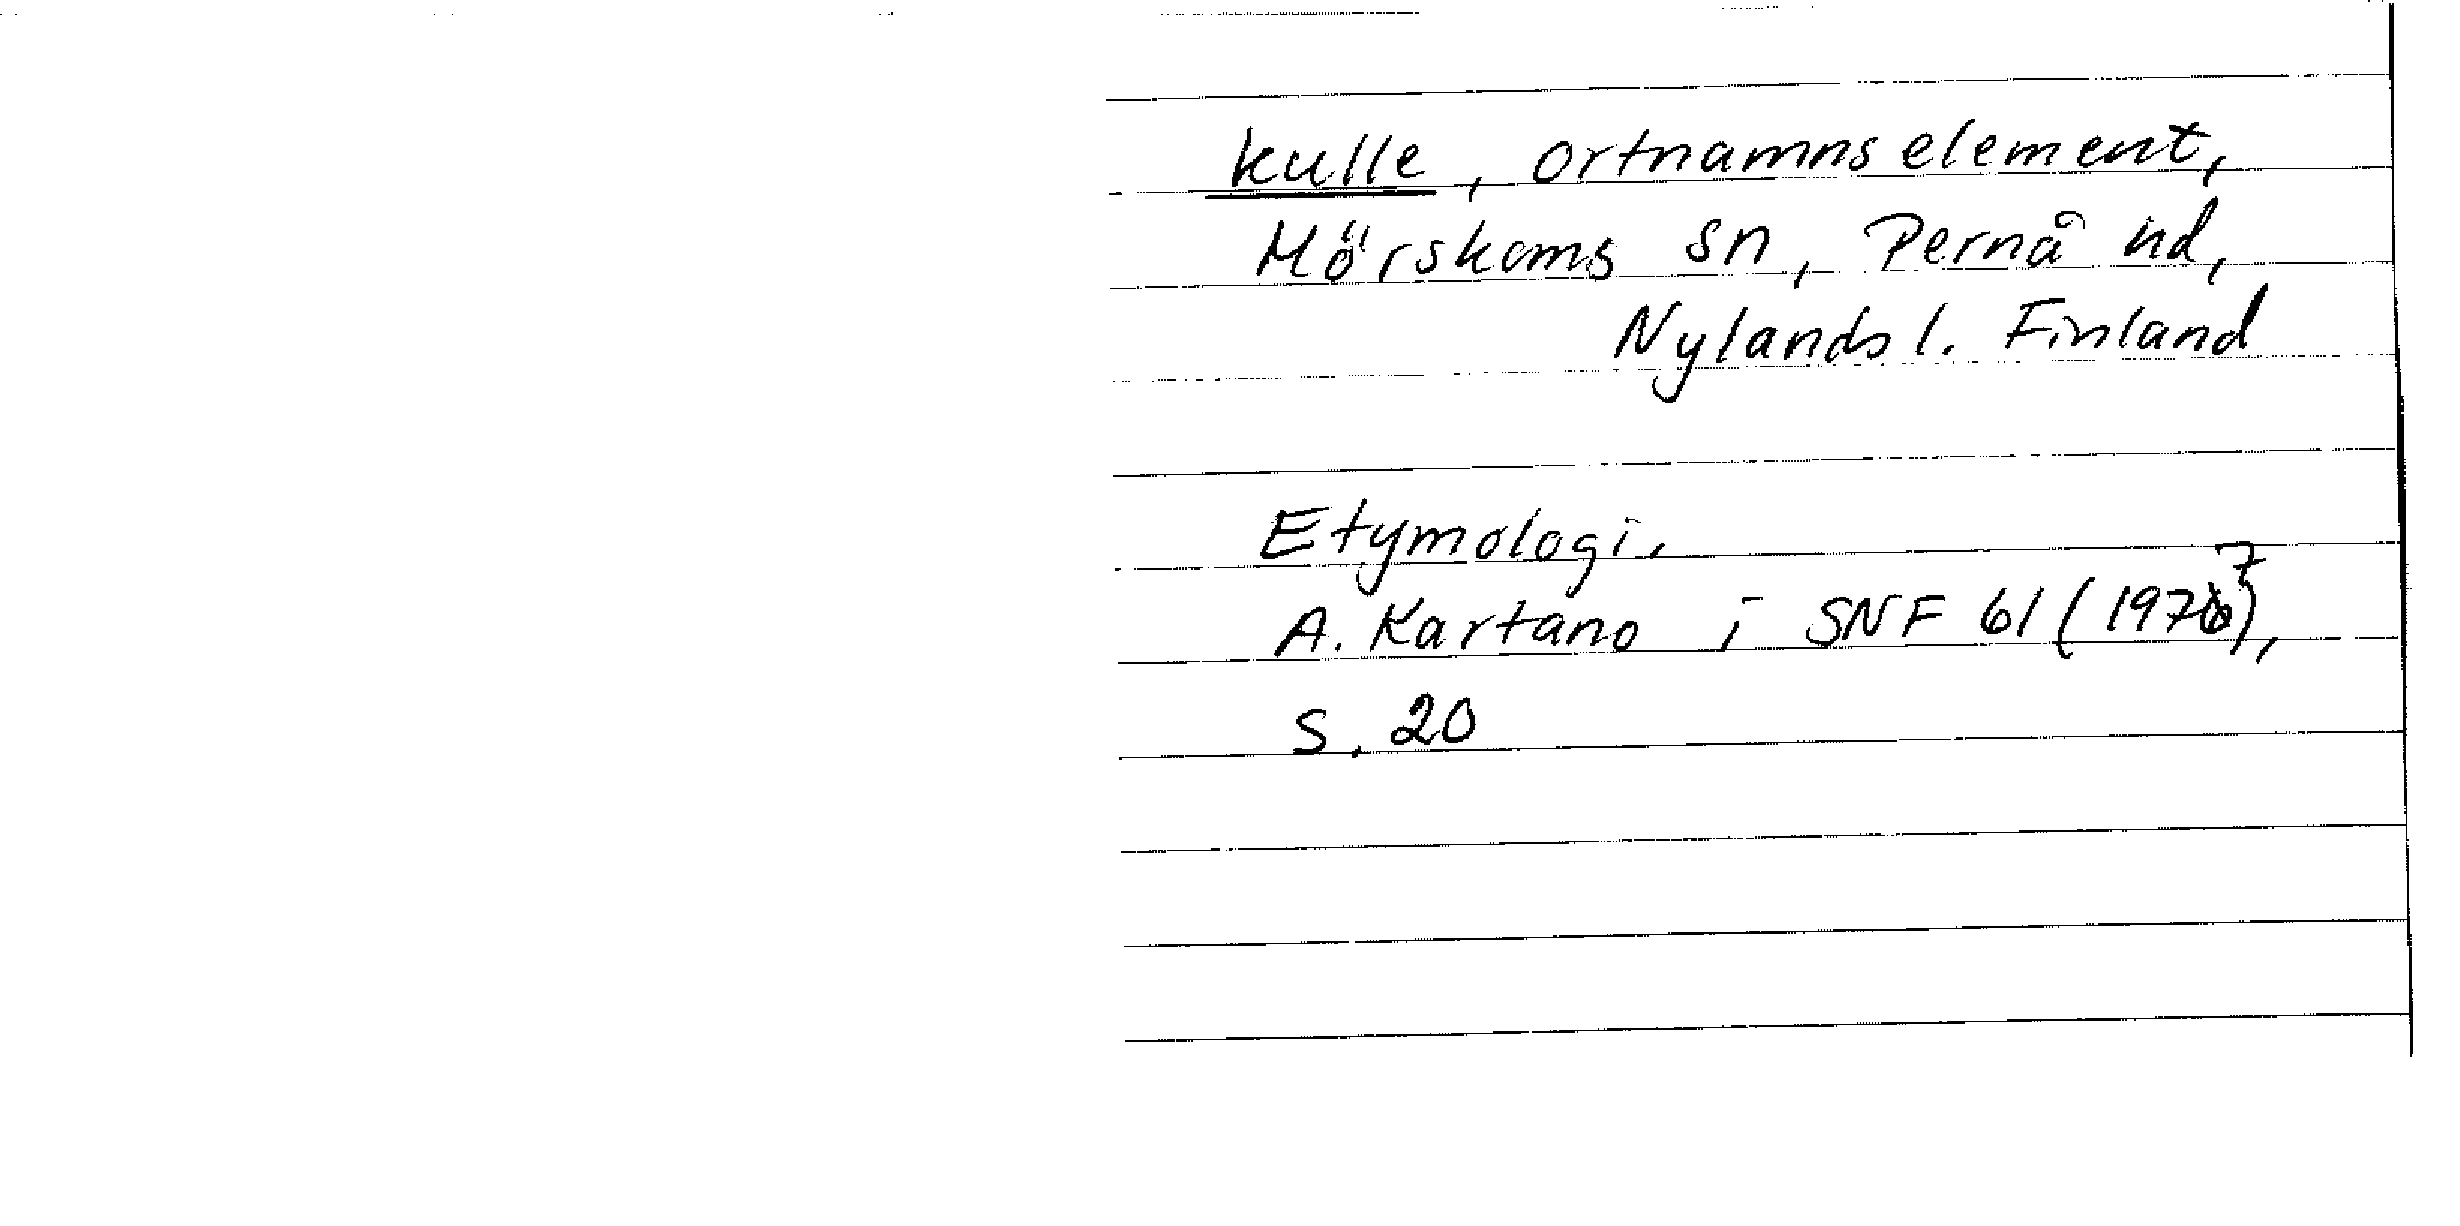 kulle, ortnamnselement,
Mörskoms sn, Pernå hd,
Nylands l. Finland
Etymologi.
A. Kartano i SNF 61 (1977),
s. 20